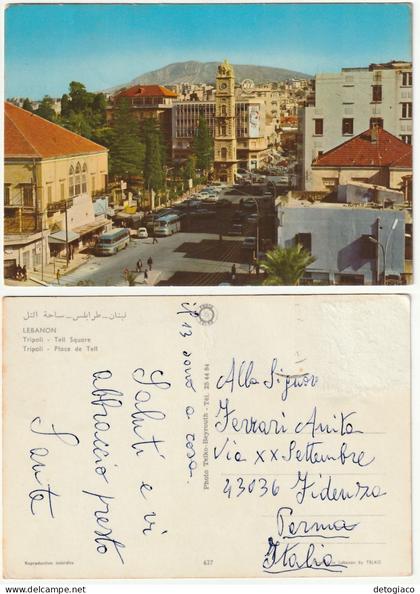 لبنان - طرابلس - ساحة التل
LEBANON
Tripoli - Tell Square
Tripoli - Place de Tell
il 13 sono a casa.
Saluti e vi
abbraccio presto
Santa
Photo Telko-Beyrouth - Tél. 25 44 84
Alla Signora
Ferrari Anita
Via XX Settembre
43036 Fidenza
Parma
Italia
Reproduction interdite
637
Lebanon by TELKO
© delcampe.net
detogiaco